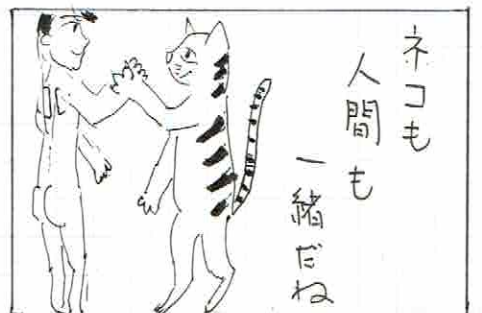 ネコも
人間も
一緒だね